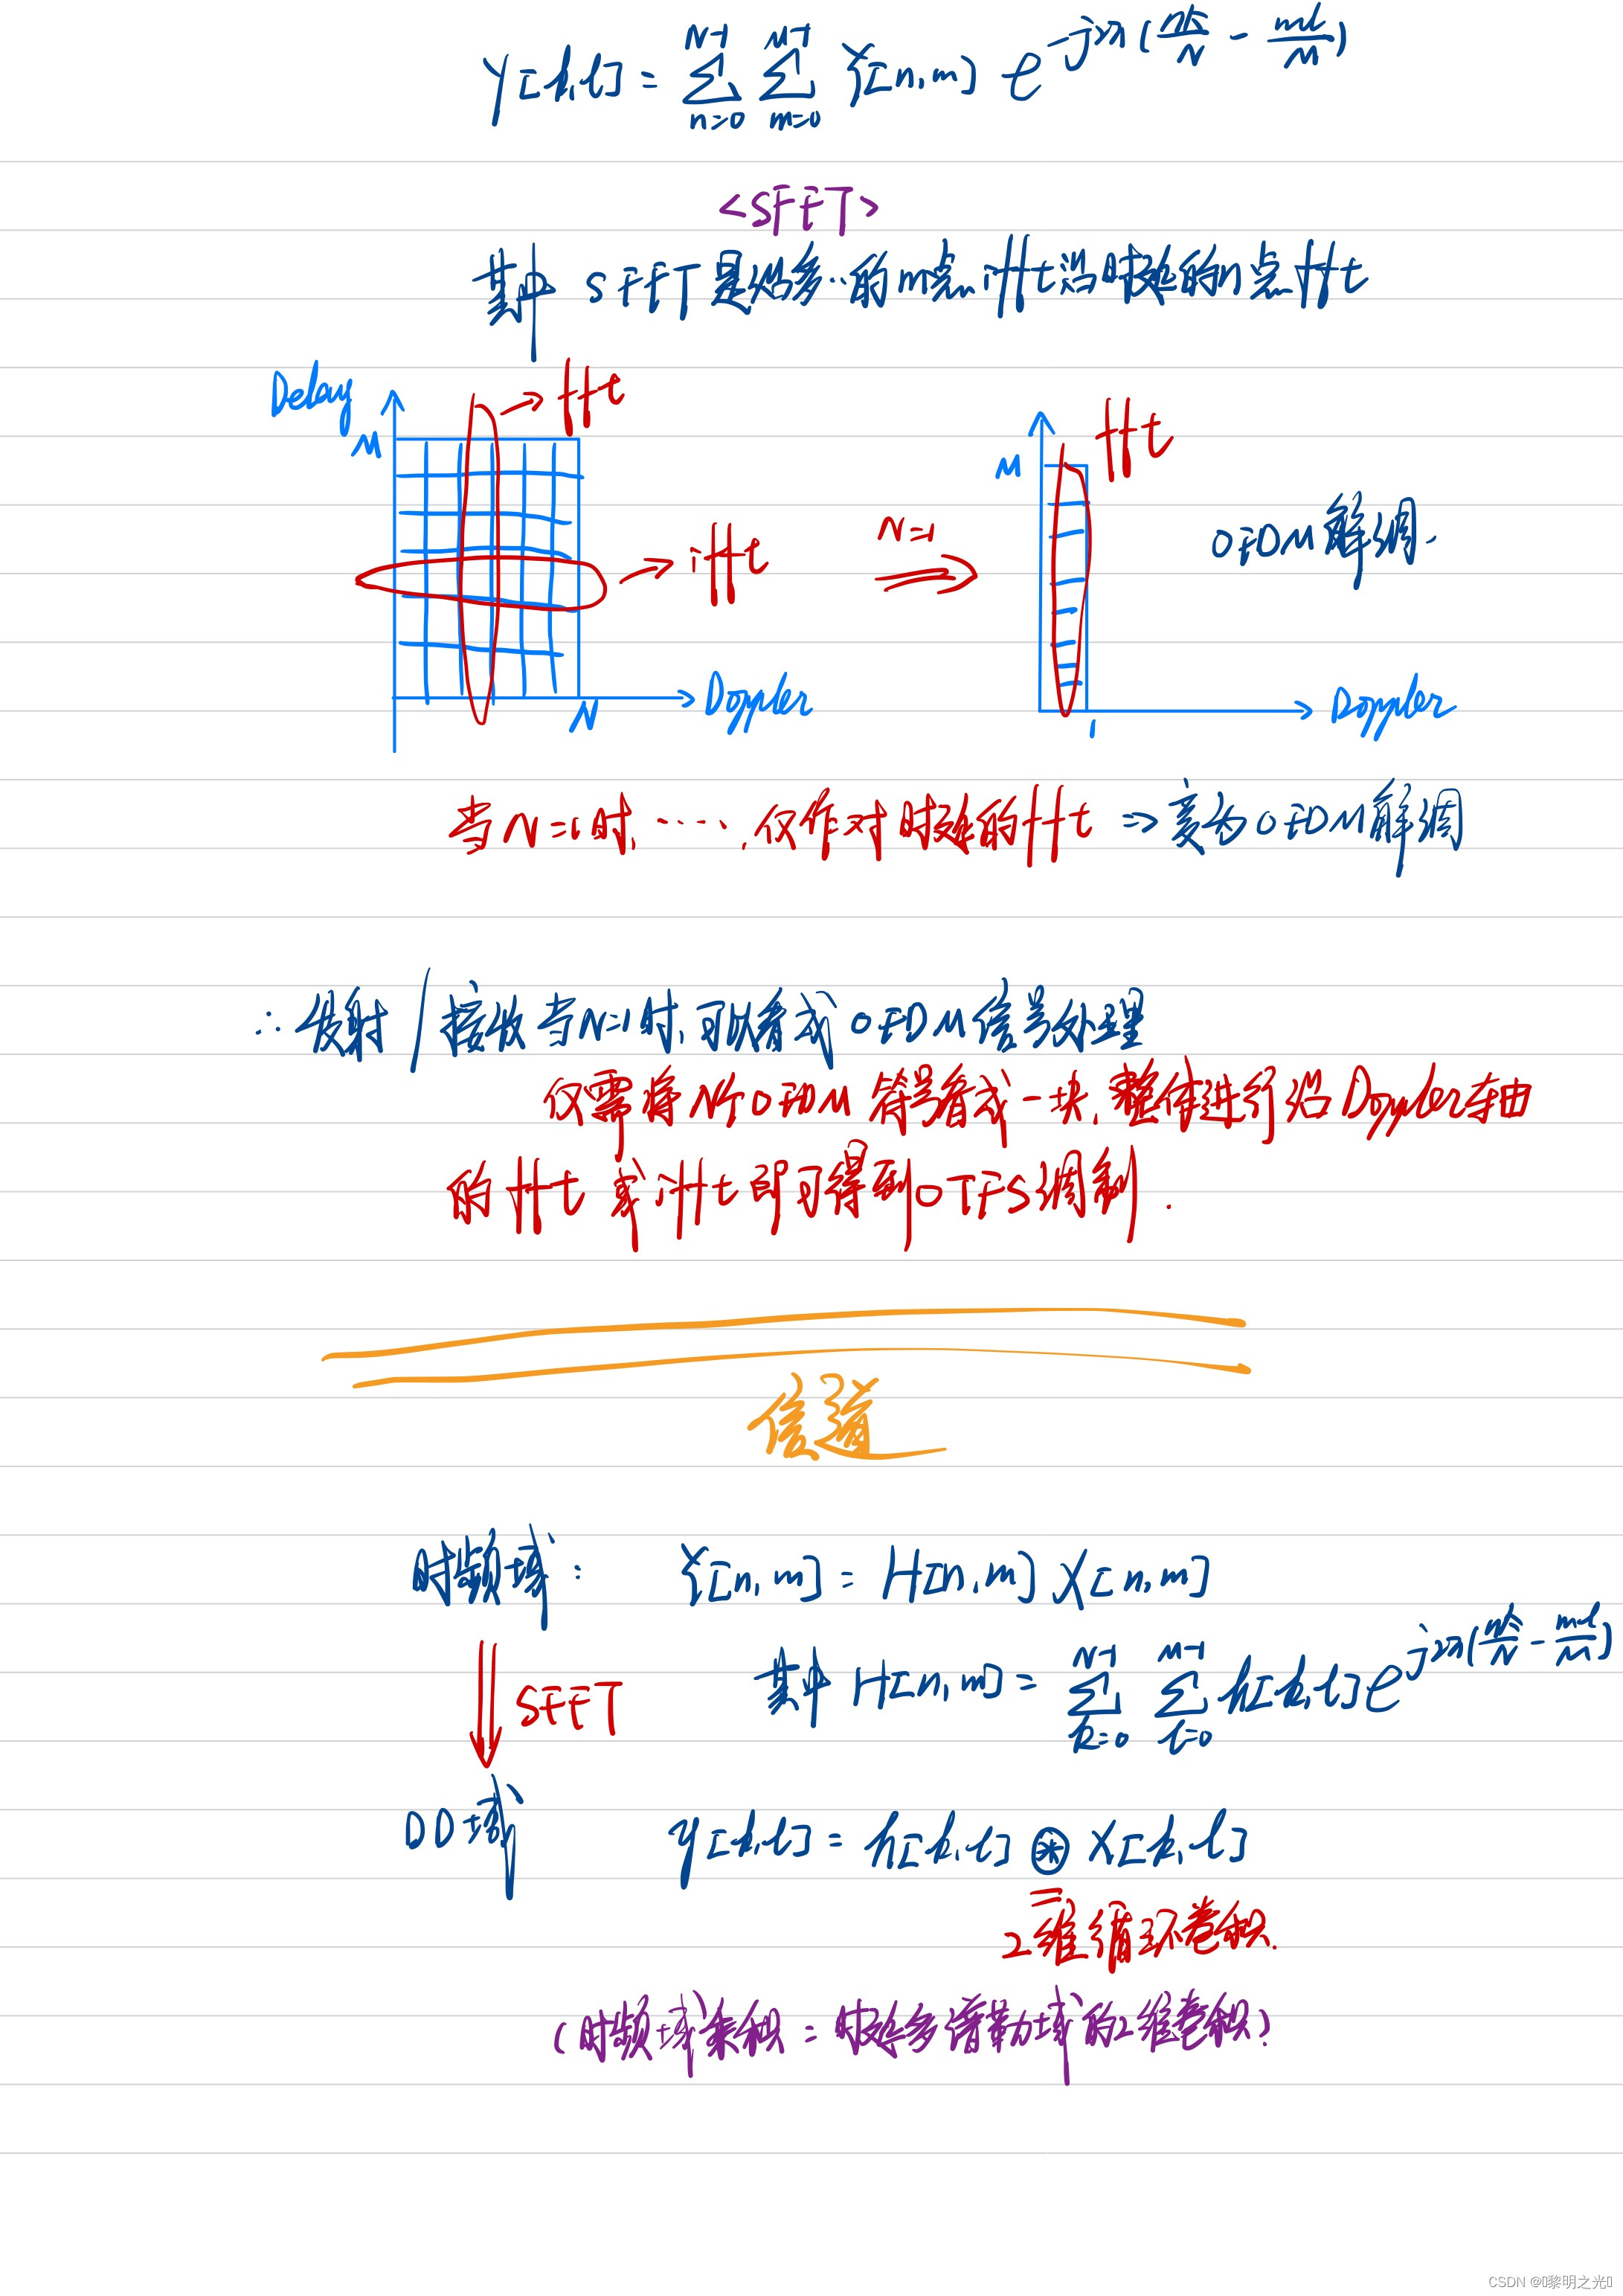 y[k,l] = \sum_{n=0}^{N-1} \sum_{m=0}^{M-1} Y[n,m] e^{-j2π(\frac{nk}{N} - \frac{ml}{M})}
<SFFT>
其中 SFFT是沿多..的m点ifft沿时延的n点fft
Delay
M
fft
ifft
N
Doppler
N=1
M
fft
1
Doppler
OFDM解调.
当N=1时, ……, 仅作对时延的fft => 变为OFDM解调
∴ 发射/接收当N=1时,可以看成OFDM信号处理
仅需将N个OFDM符号看成一块,整体进行沿Doppler轴
的fft或ifft即可得到OTFS调制.
信道
时频域: Y[n,m] = H[n,m] X[n,m]
SFFT
其中 H[n,m] = \sum_{k=0}^{N-1} \sum_{l=0}^{M-1} h[k,l] e^{j2π(\frac{nk}{N} - \frac{ml}{M})}
DD域 y[k,l] = h[k,l] ⊛ x[k,l]
2维循环卷积.
(时频域乘积 = 时延多谱勒域的2维卷积)
CSDN @黎明之光